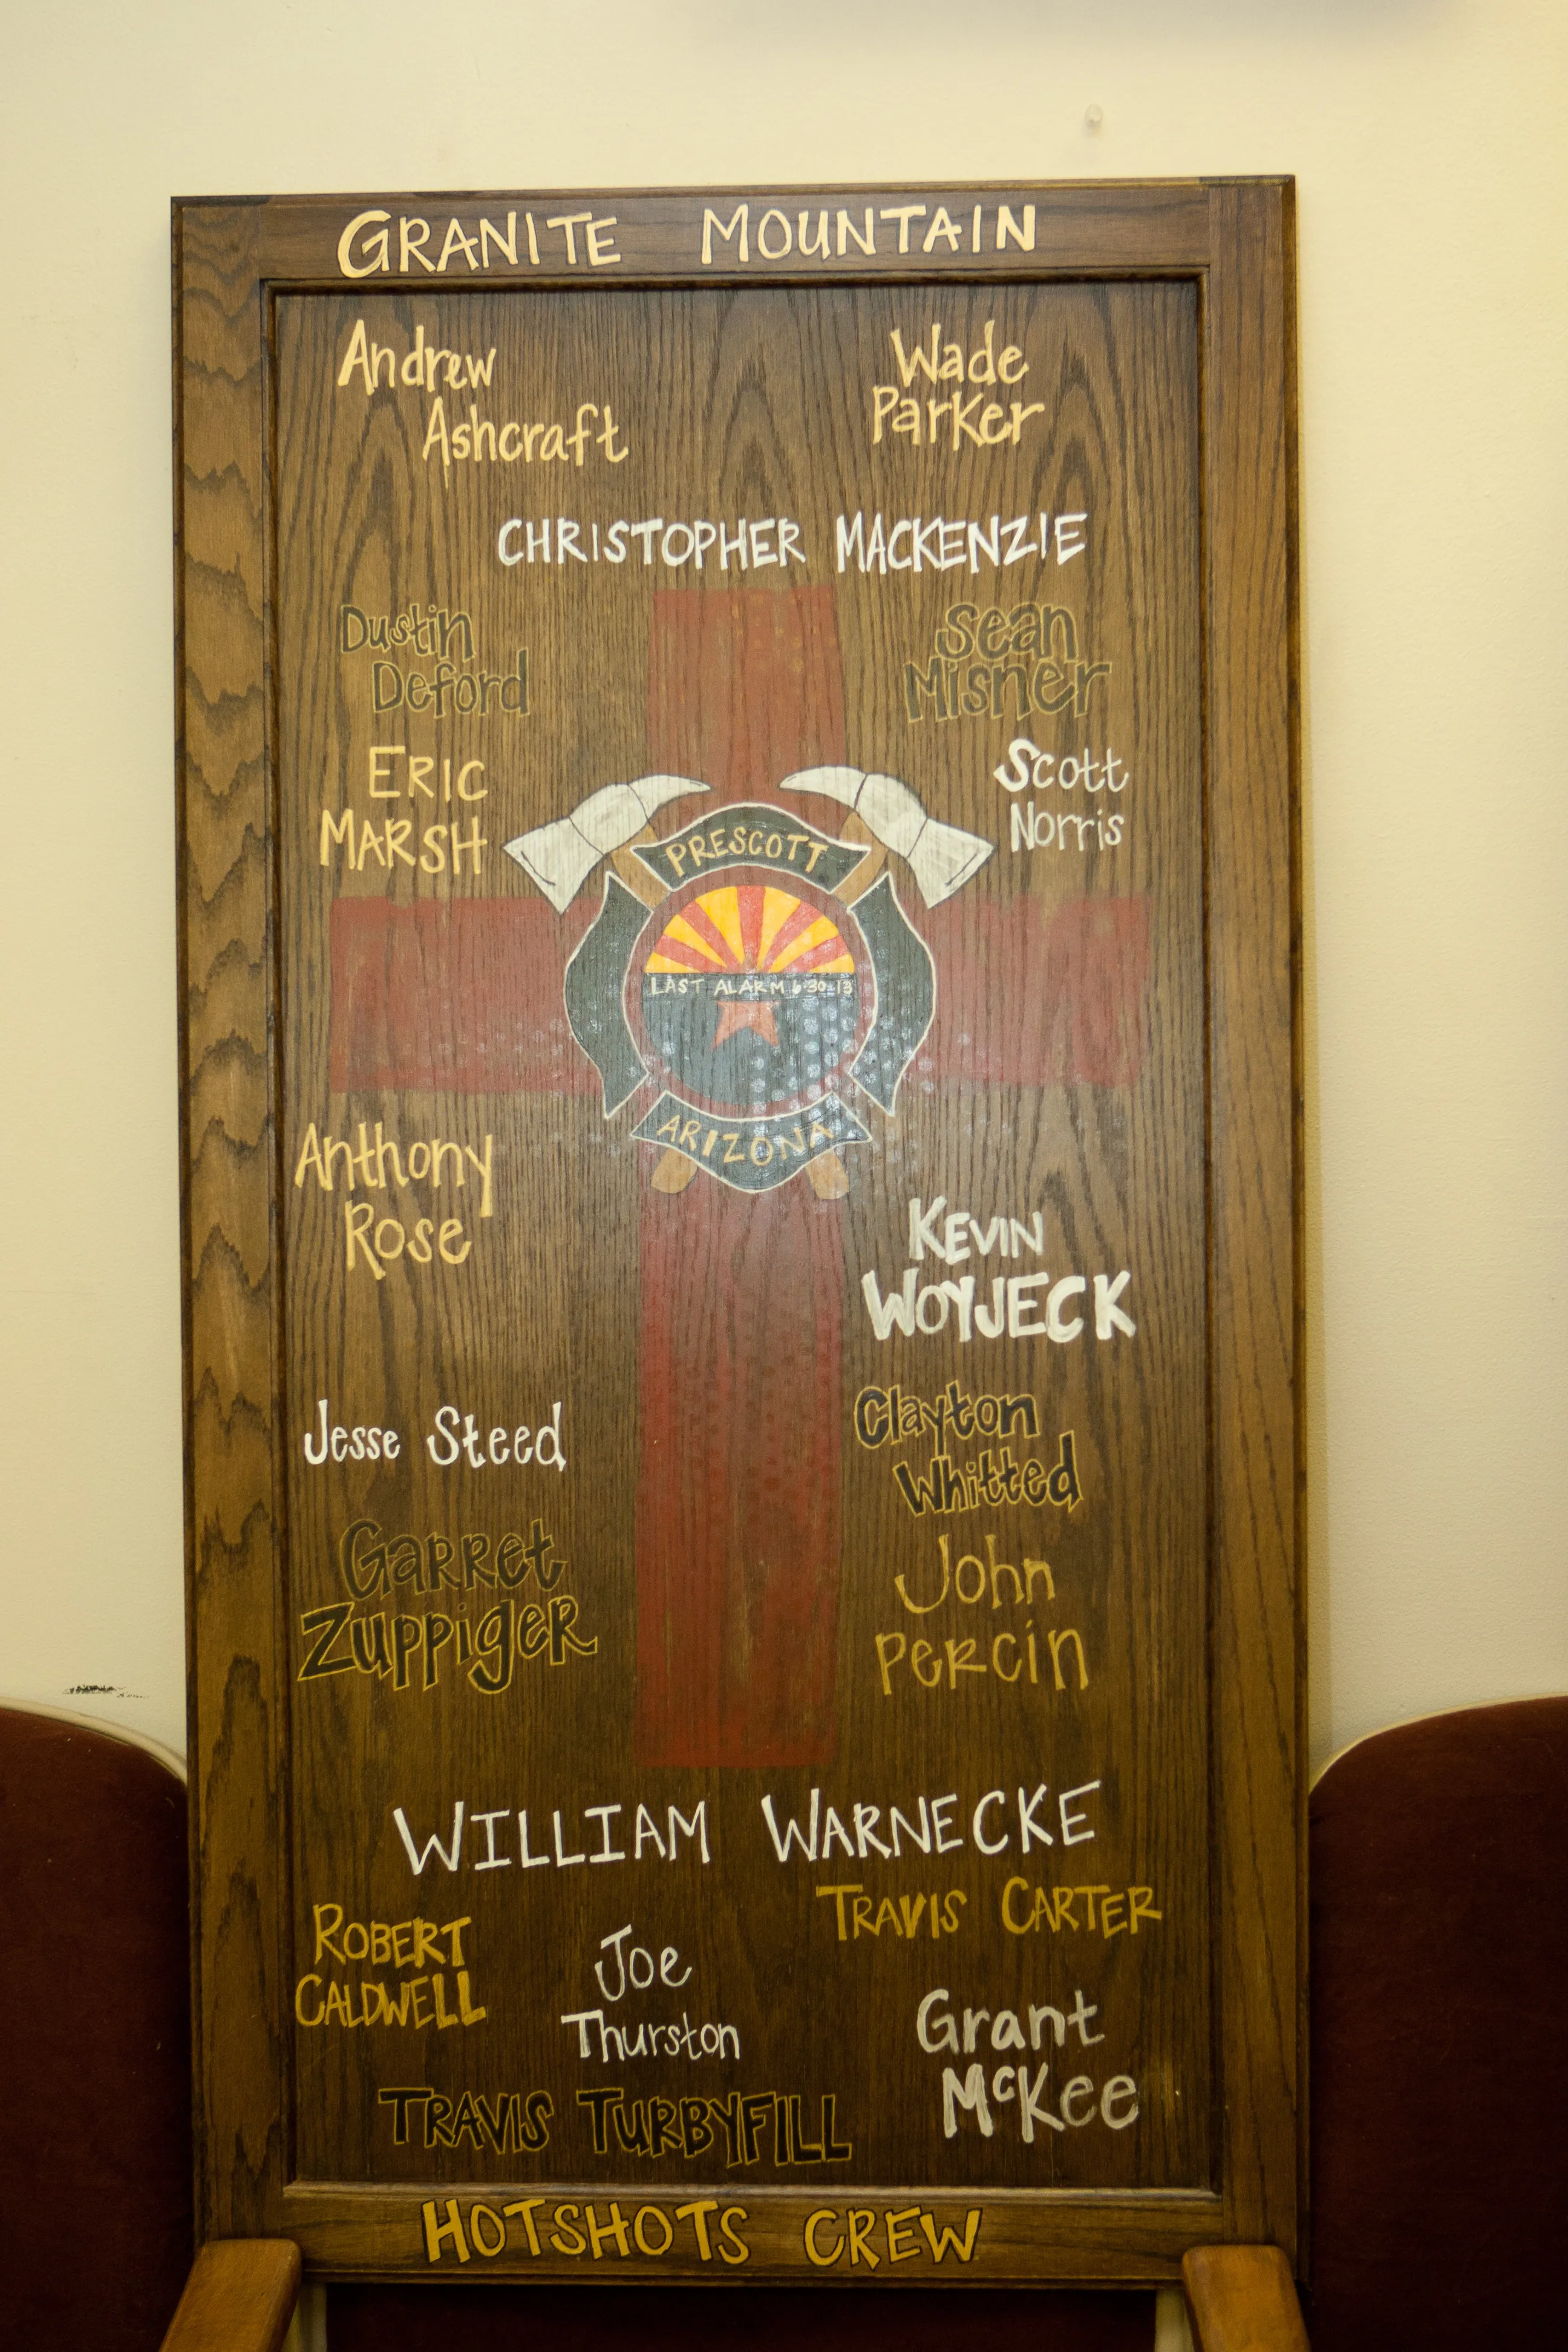 GRANITE MOUNTAIN
Andrew
Ashcraft
Wade
Parker
CHRISTOPHER MACKENZIE
Dustin
Deford
Sean
Misner
ERIC
MARSH
Scott
Norris
PRESCOTT
LAST ALARM 6-30-13
ARIZONA
Anthony
Rose
KEVIN
WOYJECK
Jesse Steed
Clayton
Whitted
GARRet
ZUPPigeR
John
PeRcin
WILLIAM WARNECKE
ROBERT
CALDWELL
TRAVIS CARTER
Joe
Thurston
Grant
McKee
TRAVIS TURBYFILL
HOTSHOTS CREW